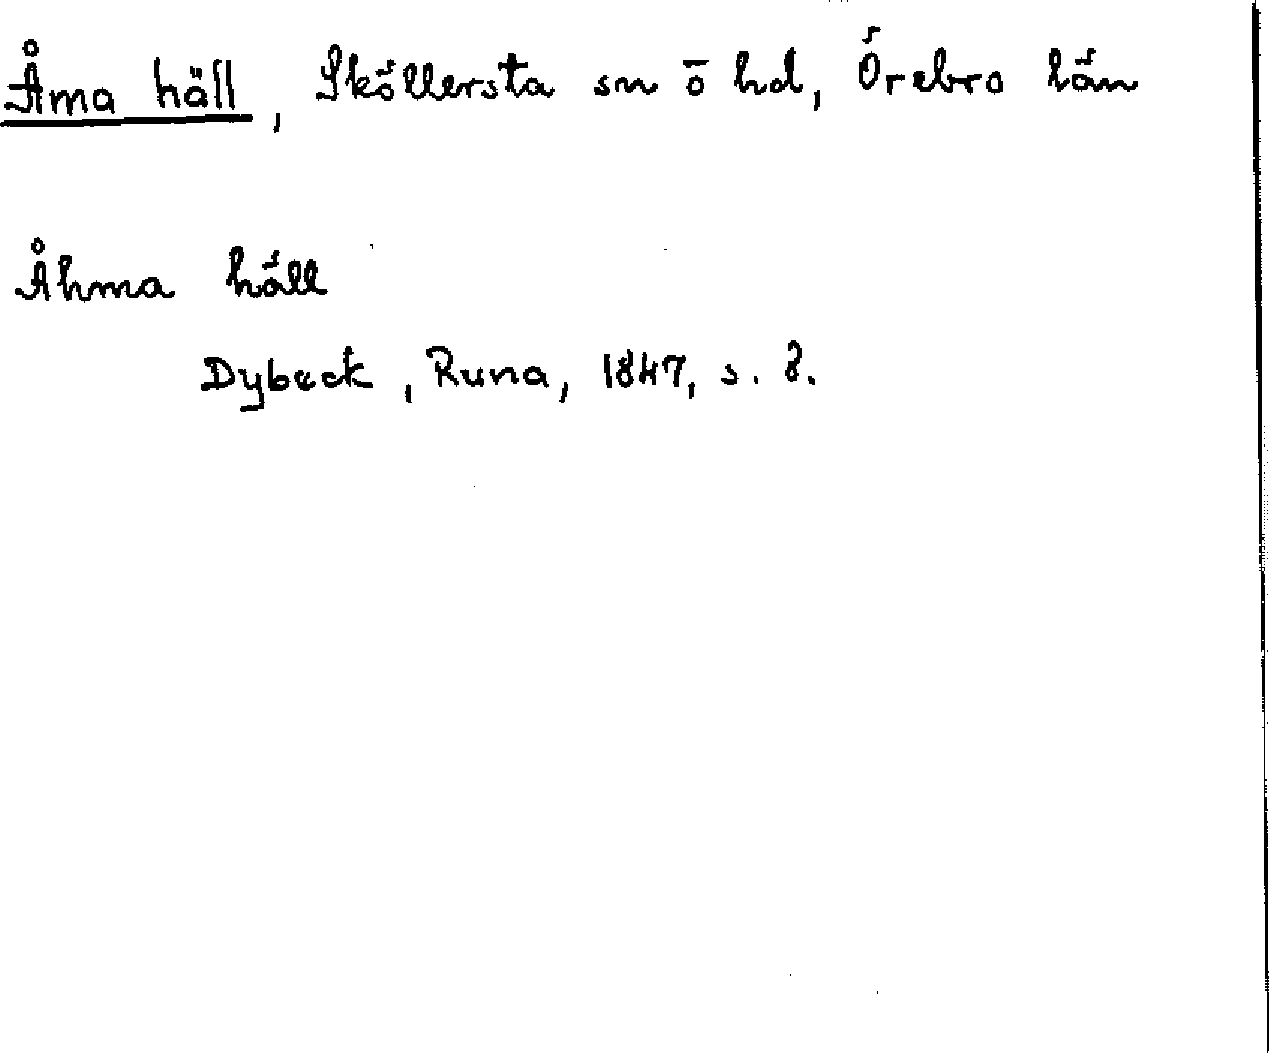 Åma häll, Sköllersta sn ō hd, Örebro län
Åhma häll
Dybeck, Runa, 1847, s. 8.